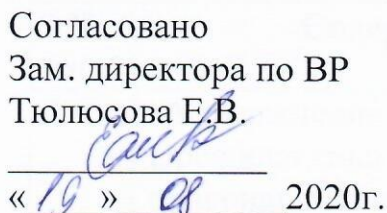 Согласовано
Зам. директора по ВР
Тюлюсова Е.В.
« 19 » 08 2020г.